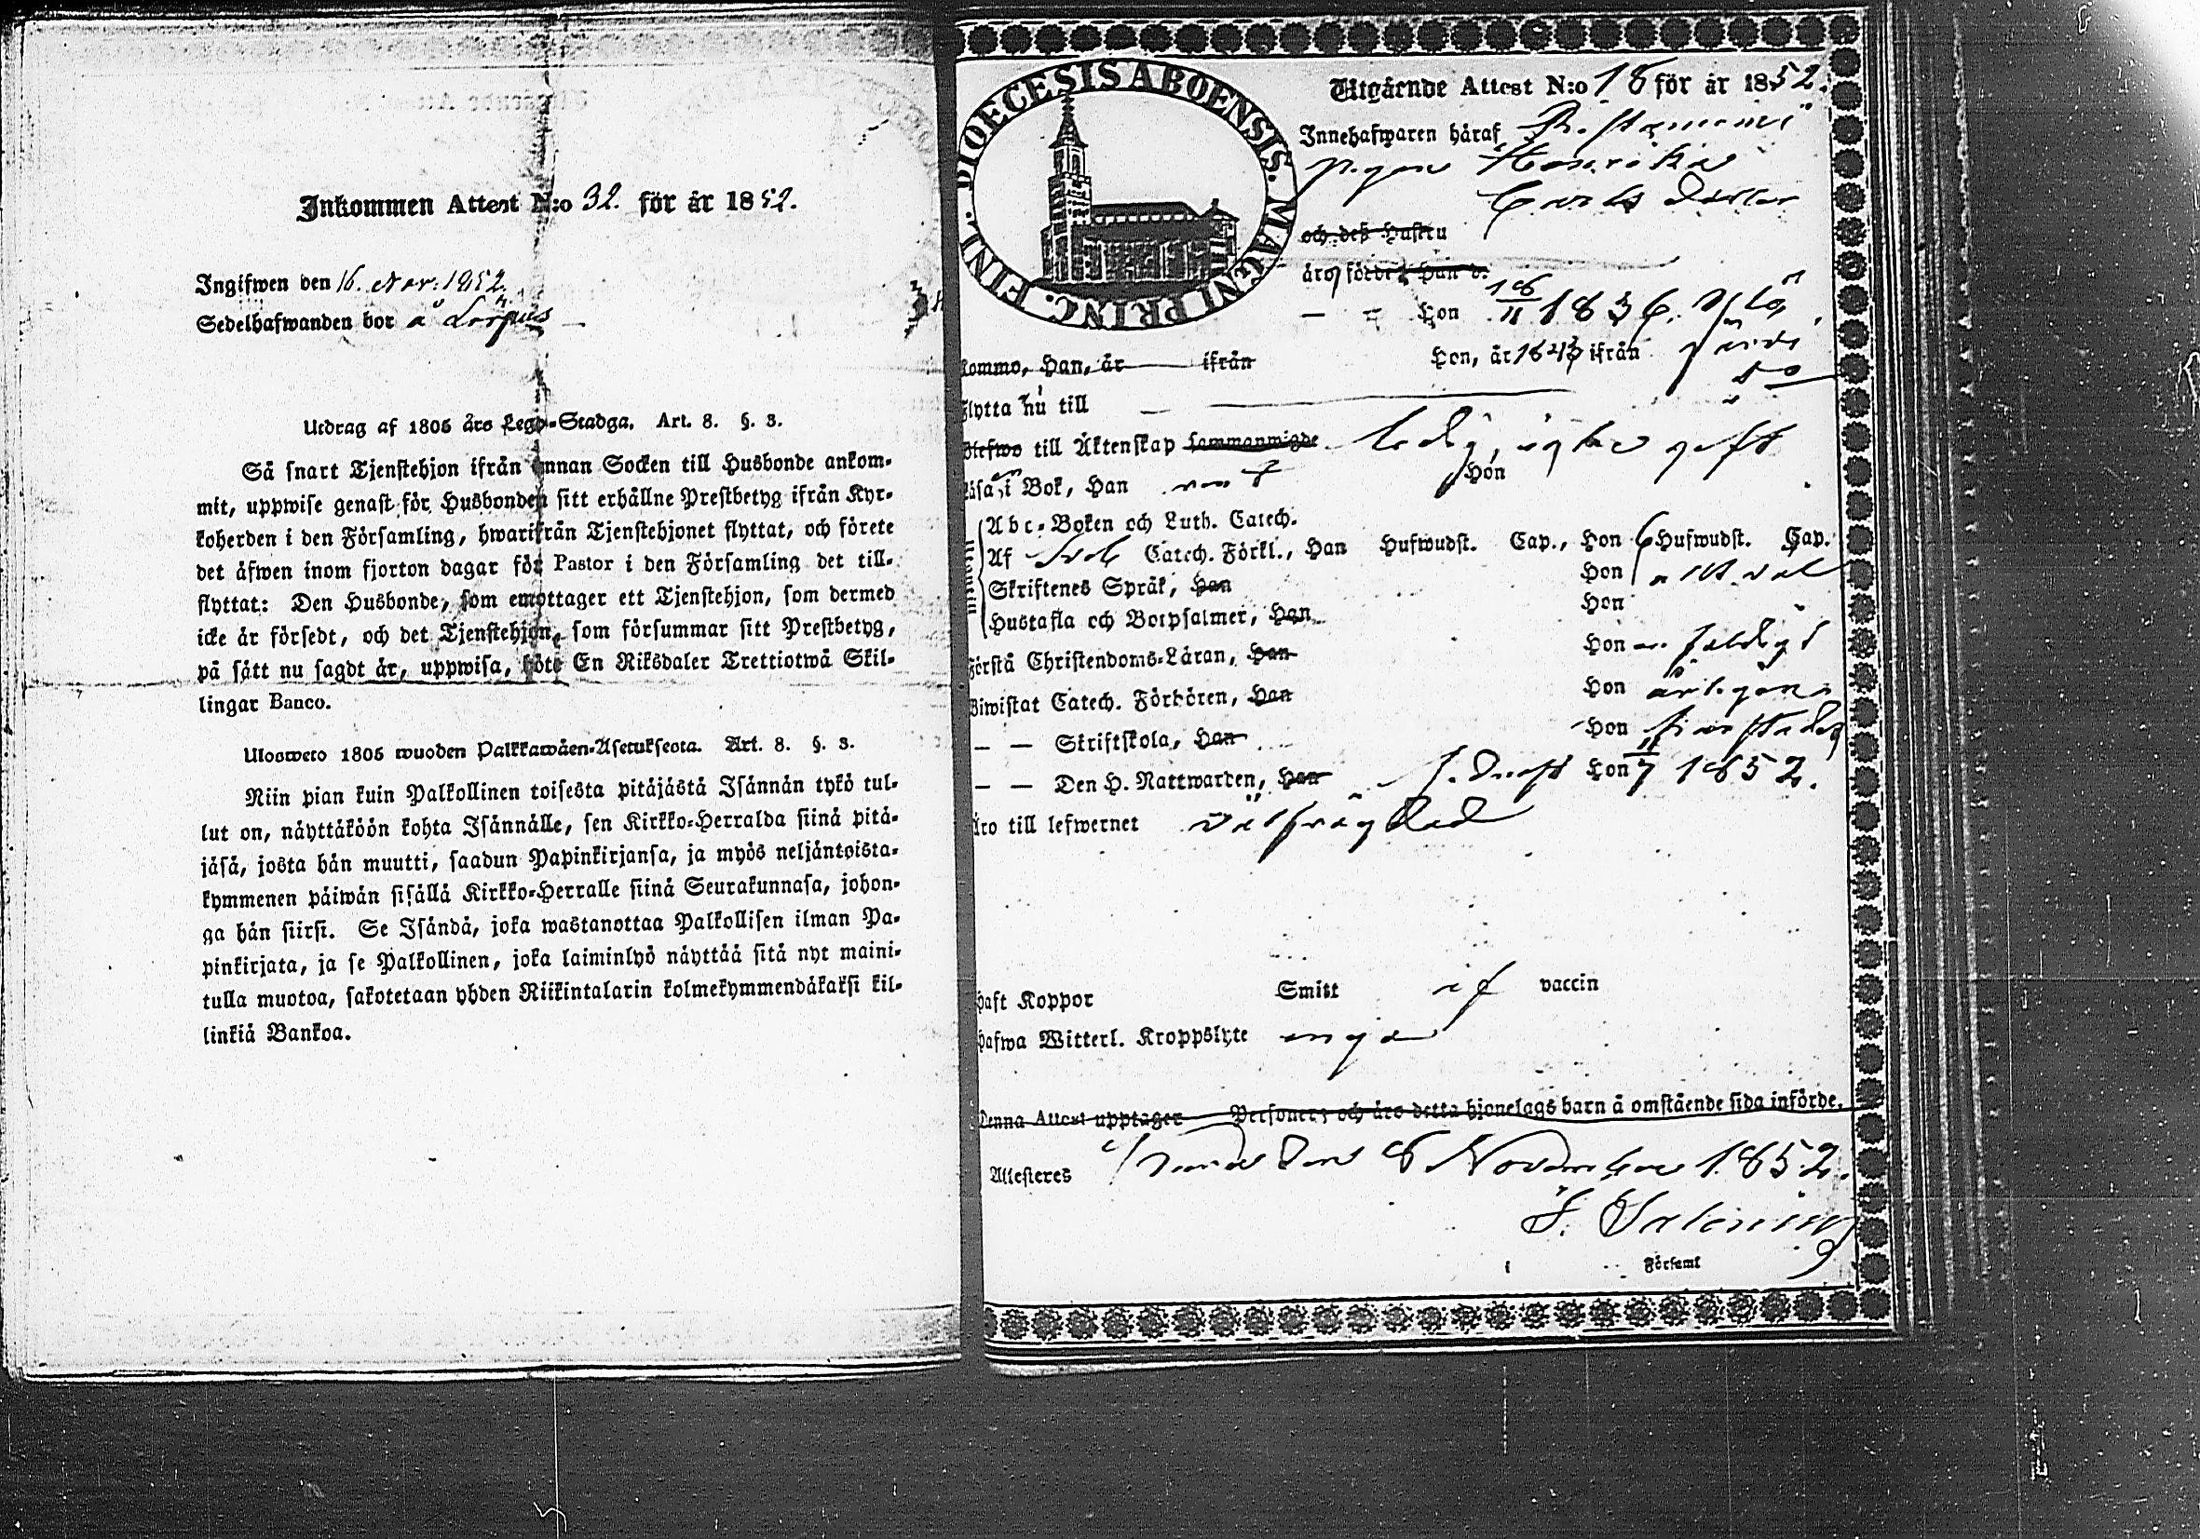 Inkommen Attest N:o 32. för år 1852.
Ingifwen den 16. Nov. 1852.
Sedelhafwanden bor å
Utdrag af 1805 års Lego-Stadga. Art. 8. §. 3.
Så snart Tjenstehjon ifrån annan Socken till Husbonde ankom-
mit, uppwise genast för Husbonden sitt erhållne Prestbetyg ifrån Kyr-
koherden i den Församling, hwarifrån Tjenstehjonet flyttat, och förete
det äfwen inom fjorton dagar för Pastor i den Församling det till-
flyttat: Den Husbonde, som emottager ett Tjenstehjon, som dermed
icke är försedt, och det Tjenstehjon, som försummar sitt Prestbetyg,
på sätt nu sagdt är, uppwisa, böte En Riksdaler Trettiotwå Skil-
lingar Banco.
Ulosweto 1805 wuoden Palkkawäen-Asetuksesta. Art. 8. §. 3.
Niin pian kuin Palkollinen toisesta pitäjästä Isännän tykö tul-
lut on, näyttäköön kohta Isännälle, sen Kirkko-Herralda siinä pitä-
jäsä, josta hän muutti, saadun Papinkirjansa, ja myös neljäntoista-
kymmenen päiwän sisällä Kirkko-Herralle siinä Seurakunnasa, johon-
ga hän siirsi. Se Isändä, joka wastanottaa Palkollisen ilman Pa-
pinkirjata, ja se Palkollinen, joka laiminlyö näyttää sitä nyt maini-
tulla muotoa, sakotetaan yhden Riikintalarin kolmekymmendäkaksi kil-
linkiä Bankoa.
DIOECESIS ABOENSIS. MAGNI PRINC. FINL.
Utgående Attest N:o 18 för år 1852.
Innehafwaren häraf
pigan Henrika
Carls dotter
och deß Hustru
äro födde, Han d.
— — Hon 18/11 1836.
kommo, Han, år ifrån Hon, år 1843 ifrån
Flytta nu till
Blefwo till Äktenskap sammanwigde ledig, giftt
Läsa i Bok, Han Hon
Abc-Boken och Luth. Catech.
Af Catech. Förkl., Han Hufwudst. Cap., Hon 6 Hufwudst. Cap.
Skriftenes Språk, Han Hon
Hustafla och Botpsalmer, Han Hon
Förstå Christendoms-Läran, Han Hon
Biwistat Catech. Förhören, Han Hon årligen
— — Skriftskola, Han Hon
— — Den H. Nattwarden, Han Hon 11/7 1852.
Äro till lefwernet välfrägdad
Haft Koppor Smitt vaccin
Hafwa Witterl. Kroppslyte inga
Denna Attest upptager Personer, och äro detta hjonelags barn å omstående sida införde.
Attesteres den 8 November 1852.
Församl